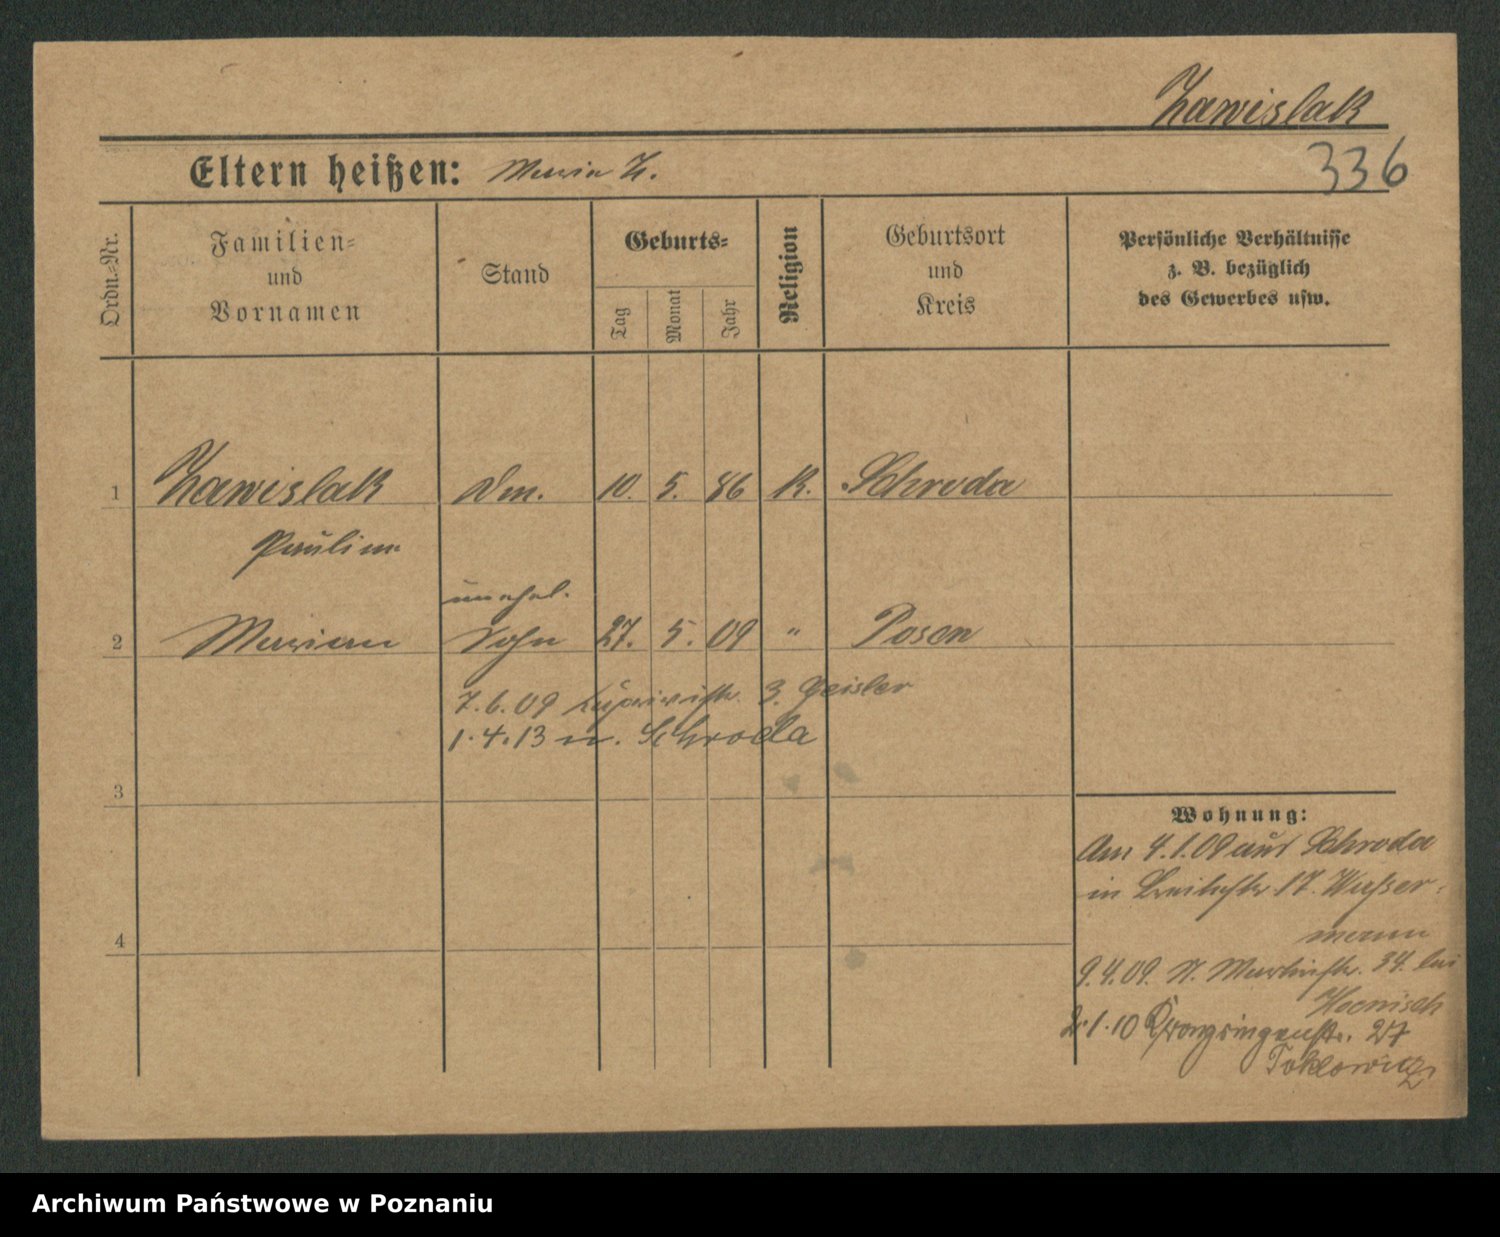 Zawislak
336
Eltern heißen: Maria Z.
Ordn.-Nr.
Familien-
und
Vornamen
Stand
Geburts-
Tag
Monat
Jahr
Religion
Geburtsort
und
Kreis
Persönliche Verhältnisse
z. B. bezüglich
des Gewerbes usw.
1 Zawislak 10. 5. 86 K. Schroda
Pauline
unehel.
2 Marian Sohn 27. 5. 09 " Posen
7.6.09 3. Geisler
1.4.13 n. Schroda
3
4
Wohnung:
Am 4.1.09 aus Schroda
in 17. Wasser-
mann
9.4.09. St. Martinstr. 34. bei
Hoenisch
2.1.10 27
Archiwum Państwowe w Poznaniu